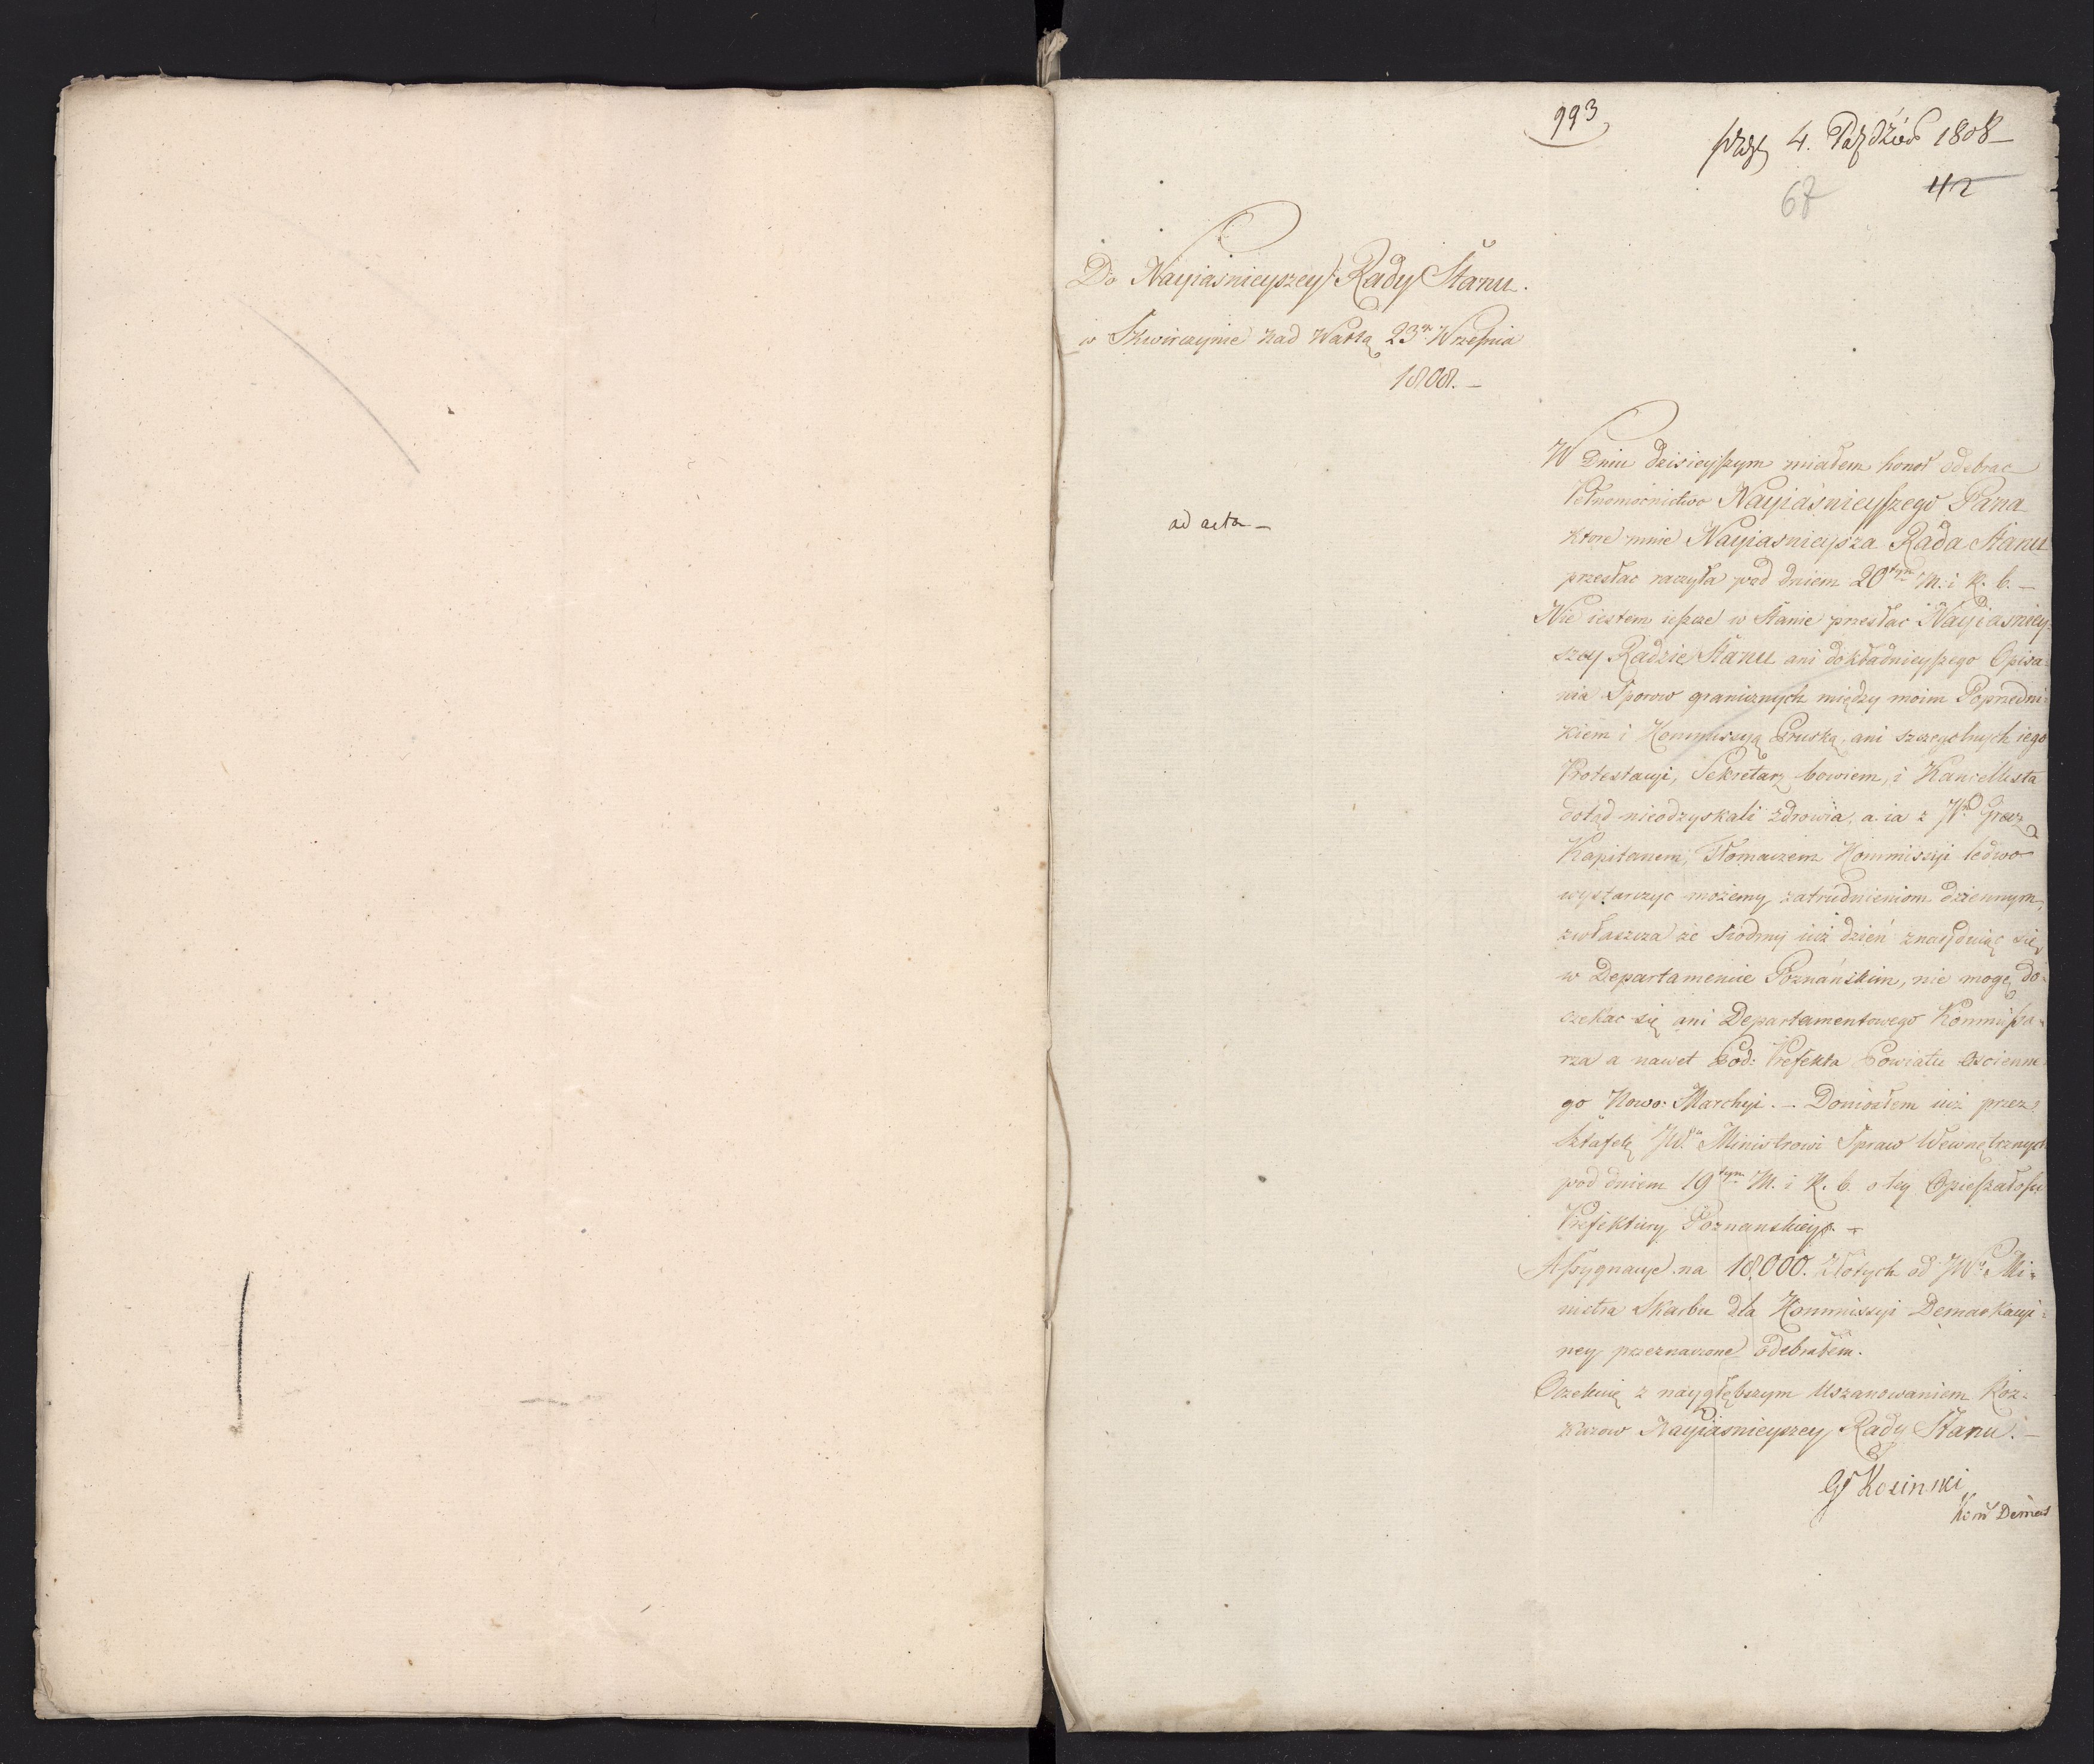 993
4. Paździer 1808
67
42
Do Nayiasnieyszey Rady Stanu.
w Skwirzynie nad Wartą 23º Września
1808. –
ad acta –
W Dniu dzisieyszym miałem honor odebrac
Pełnomocnictwo Nayiaśnieyszego Pana
ktore mnie Nayiasnieysza Rada Stanu
przesłac raczyła pod dniem 20tym M. i R. b. –
Nie iestem ieszcze w Stanie przesłac Nayiasniey-
szey Radzie Stanu ani dokładnieyszego Opisa-
nia Sporow granicznych między moim Poprzedni-
kiem i Kommissyą Pruską, ani szczegolnych iego
Protestacyi, Sekretarz bowiem, i Kancellista
dotąd nieodzyskali zdrowia, a ia z
Kapitanem, Tłomaczem Kommissyi ledwo
wystarczyc możemy zatrudnieniom dziennym,
zwłaszcza że siodmy iuż dzień znayduiąc się
w Departamencie Poznańskim, nie mogę do-
czekac się ani Departamentowego Kommissa-
rza a nawet Pod: Prefekta Powiatu Oscienne
go Nowo: Marchyi. – Doniosłem iuż przez
Sztafetę JW. Ministrowi Spraw Wewnętrznych
pod dniem 19tym M. i R. b. o tey Opieszałosci
Prefektury Poznanskiey. –
Assygnacye na 18,000. Złotych od JW. Mi-
nistra Skarbu dla Kommissyi Demarkacyi-
ney przeznaczone odebrałem.
Oczekuię z naygłębszym Uszanowaniem Roz-
kazow Nayiasnieyszey Rady Stanu. –
Gł Kosinski
Kom Demar